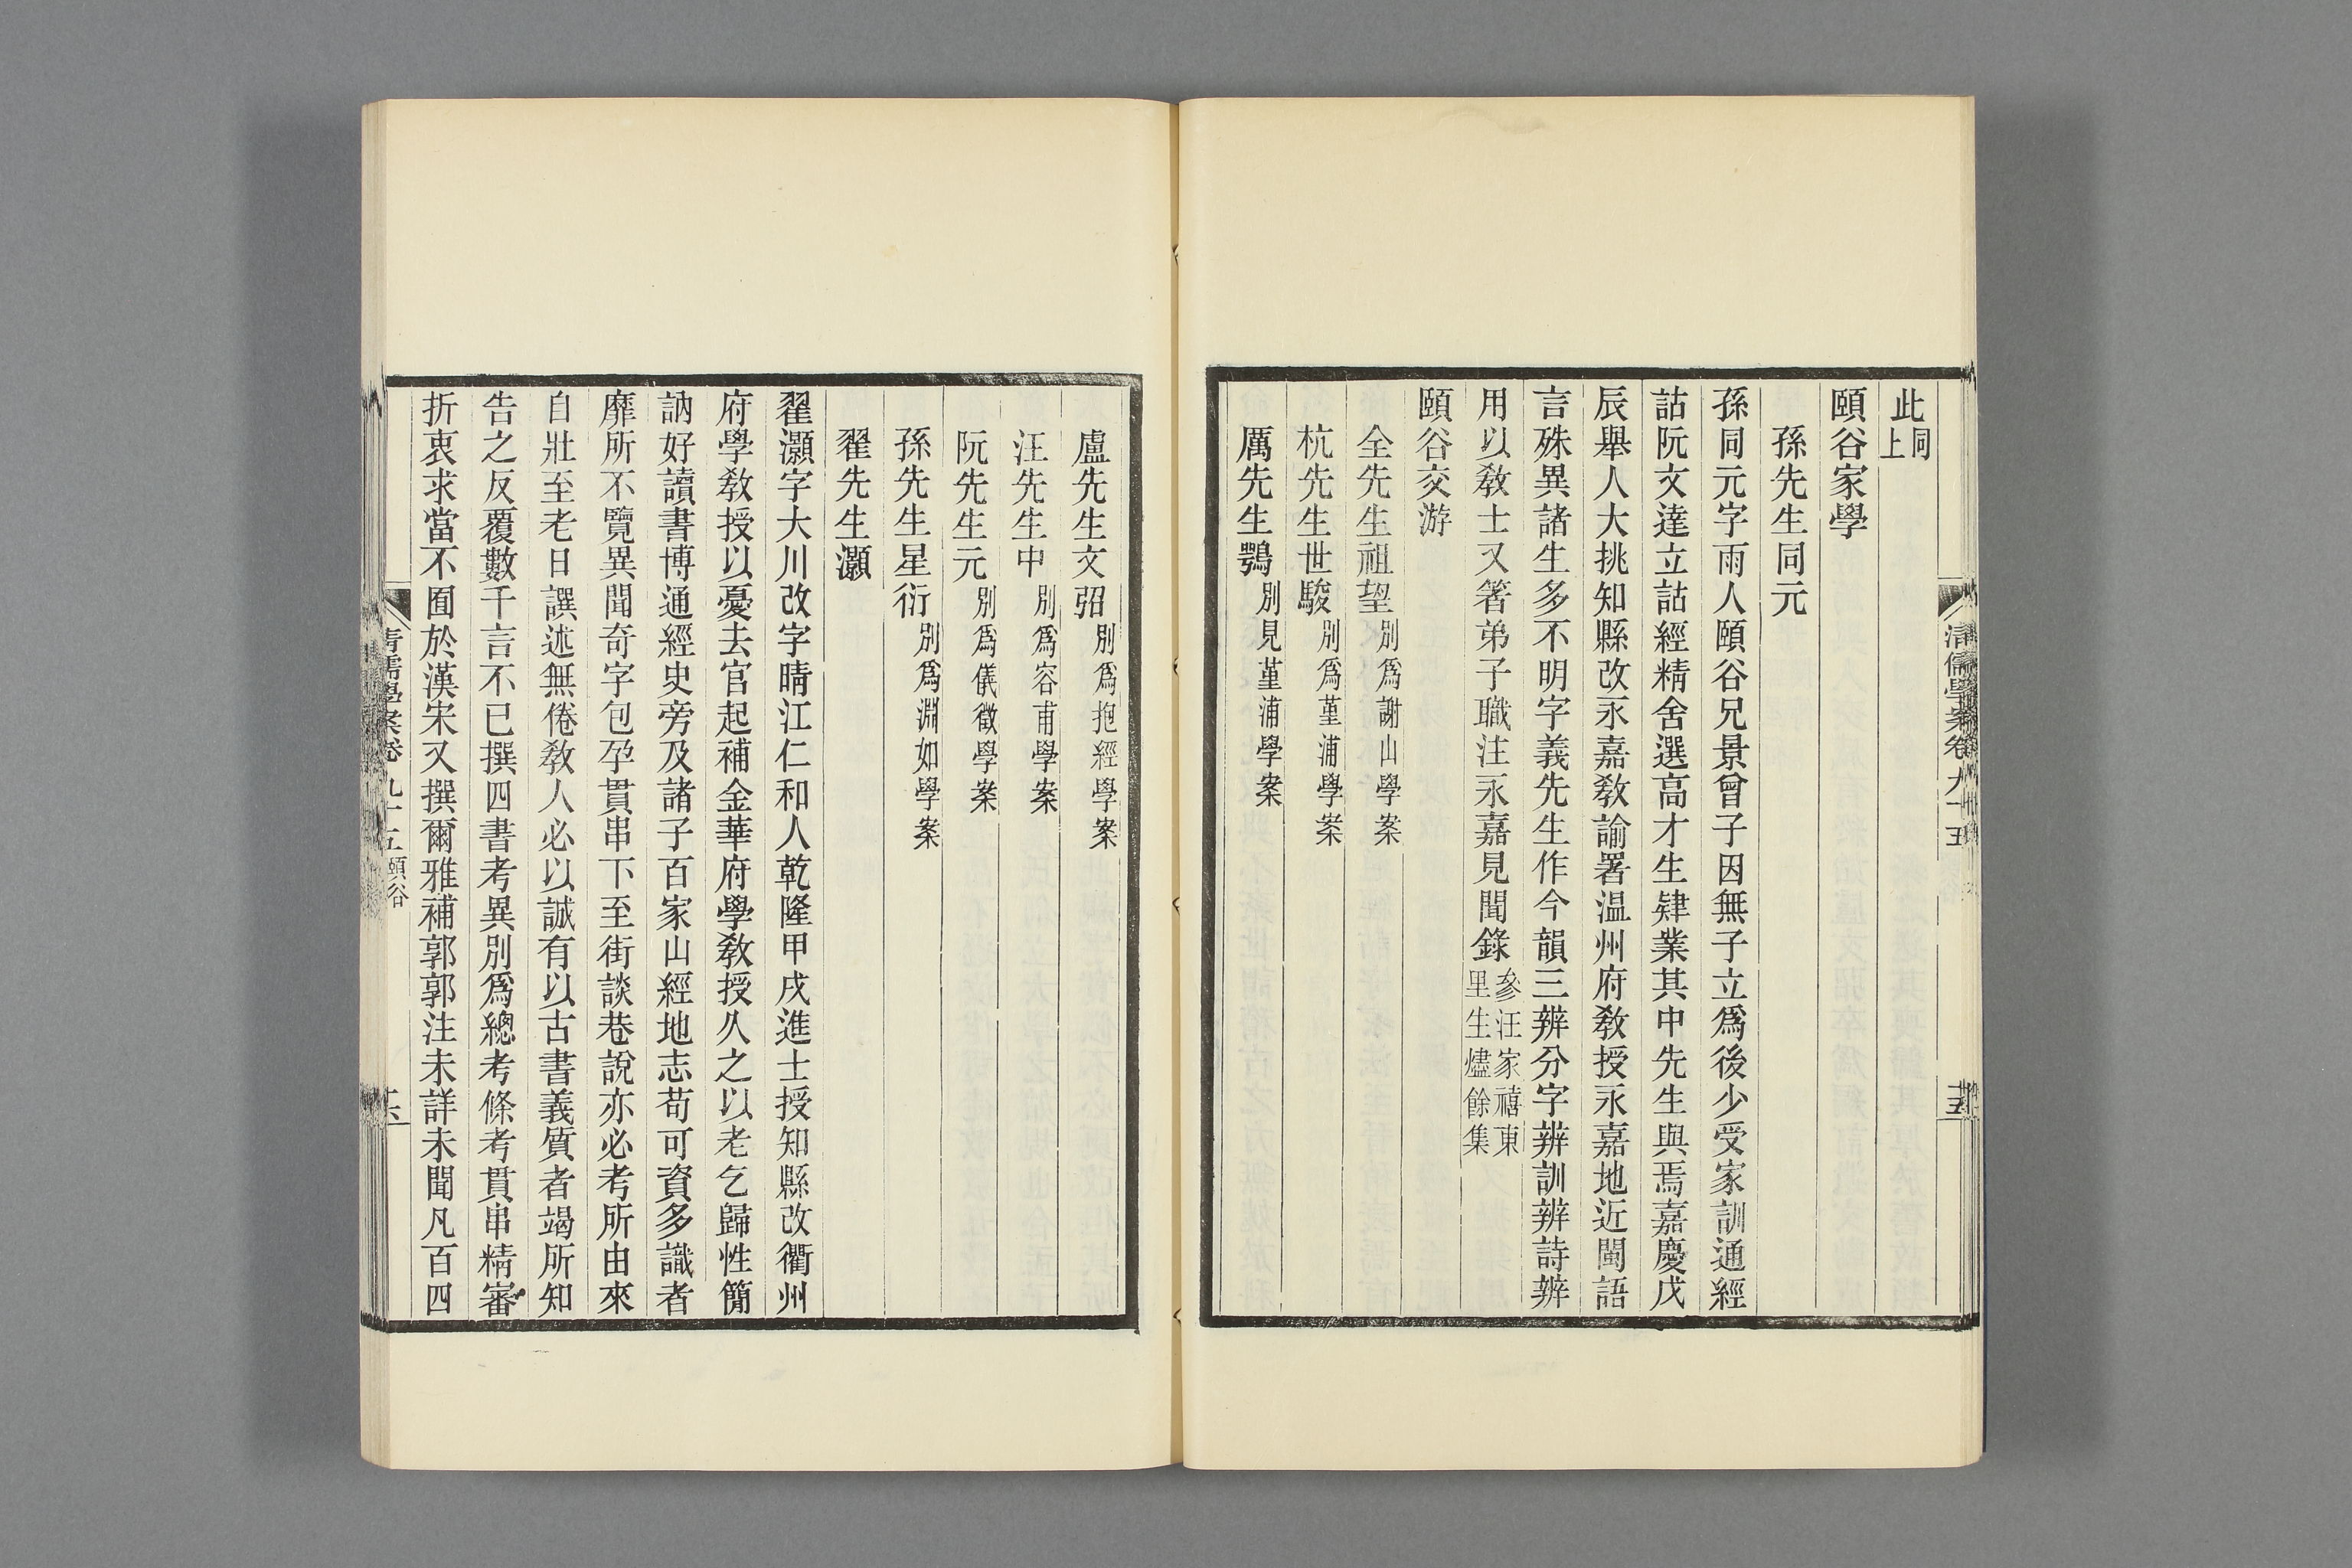 此同上
頤谷家學
孫先生同元
孫同元字雨人頤谷兄景曾子因無子立爲後少受家訓通經
詁阮文達立詁經精舍選高才生肄業其中先生與焉嘉慶戊
辰舉人大挑知縣改永嘉敎諭署温州府敎授永嘉地近閩語
言殊異諸生多不明字義先生作今韻三辨分字辨訓辨詩辨
用以敎士又箸弟子職注永嘉見聞錄參汪家禧東里生燼餘集
頤谷交游
全先生祖望別爲謝山學案
杭先生世駿別爲堇浦學案
厲先生鶚別見堇浦學案
清儒學案卷九十五
盧先生文弨別爲抱經學案
汪先生中別爲容甫學案
阮先生元別爲儀徵學案
孫先生星衍別爲淵如學案
翟先生灝
翟灝字大川改字晴江仁和人乾隆甲戌進士授知縣改衢州
府學敎授以憂去官起補金華府學敎授久之以老乞歸性簡
訥好讀書博通經史旁及諸子百家山經地志苟可資多識者
靡所不覽異聞奇字包孕貫串下至街談巷說亦必考所由來
自壯至老日譔述無倦敎人必以誠有以古書義質者竭所知
告之反覆數千言不已撰四書考異別爲總考條考貫串精審
折衷求當不囿於漢宋又撰爾雅補郭郭注未詳未聞凡百四
清儒學案卷九十五頤谷